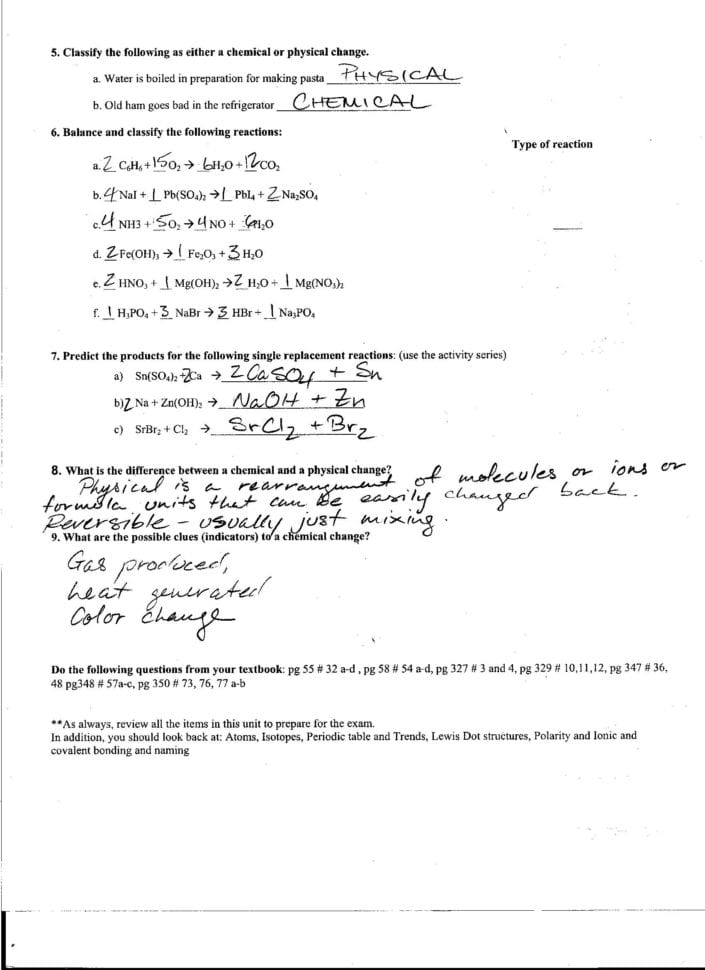 5. Classify the following as either a chemical or physical change.
a. Water is boiled in preparation for making pasta PHYSICAL
b. Old ham goes bad in the refrigerator CHEMICAL
6. Balance and classify the following reactions:
Type of reaction
a. 2 C₆H₆ + 15 O₂ → 6 H₂O + 12 CO₂
b. 4 NaI + 1 Pb(SO₄)₂ → 1 PbI₄ + 2 Na₂SO₄
c. 4 NH3 + 5 O₂ → 4 NO + 6 H₂O
d. 2 Fe(OH)₃ → 1 Fe₂O₃ + 3 H₂O
e. 2 HNO₃ + 1 Mg(OH)₂ → 2 H₂O + 1 Mg(NO₃)₂
f. 1 H₃PO₄ + 3 NaBr → 3 HBr + 1 Na₃PO₄
7. Predict the products for the following single replacement reactions: (use the activity series)
a) Sn(SO₄)₂ + 2Ca → 2 CaSO₄ + Sn
b) 2 Na + Zn(OH)₂ → NaOH + Zn
c) SrBr₂ + Cl₂ → SrCl₂ + Br₂
8. What is the difference between a chemical and a physical change?
Physical is a rearrangement of molecules or ions or
formula units that can be easily changed back.
Reversible - usually just mixing.
9. What are the possible clues (indicators) to a chemical change?
Gas produced,
heat generated
Color change
Do the following questions from your textbook: pg 55 # 32 a-d , pg 58 # 54 a-d, pg 327 # 3 and 4, pg 329 # 10,11,12, pg 347 # 36,
48 pg348 # 57a-c, pg 350 # 73, 76, 77 a-b
**As always, review all the items in this unit to prepare for the exam.
In addition, you should look back at: Atoms, Isotopes, Periodic table and Trends, Lewis Dot structures, Polarity and Ionic and
covalent bonding and naming